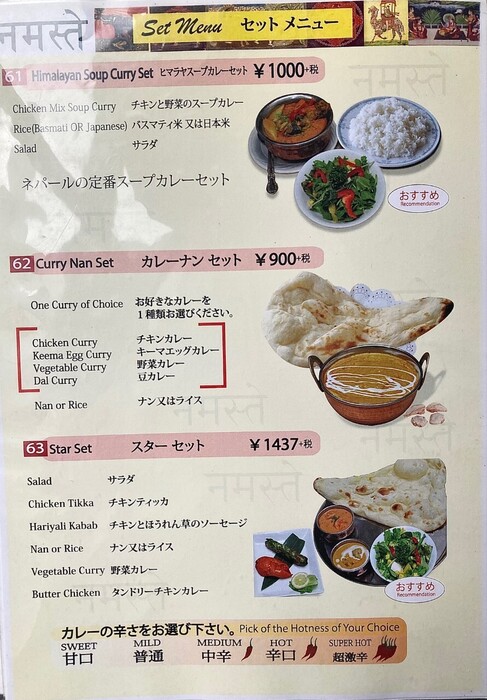 नमस्ते
Set Menu セット メニュー
61 Himalayan Soup Curry Set ヒマラヤスープカレーセット ¥1000+税
नमस्ते
Chicken Mix Soup Curry チキンと野菜のスープカレー
Rice(Basmati OR Japanese) バスマティ米 又は日本米
Salad サラダ
ネパールの定番スープカレーセット
おすすめ
Recommendation
62 Curry Nan Set カレーナン セット ¥900+税
One Curry of Choice お好きなカレーを
1種類お選びください。
Chicken Curry チキンカレー
Keema Egg Curry キーマエッグカレー
Vegetable Curry 野菜カレー
Dal Curry 豆カレー
Nan or Rice ナン又はライス
नमस्ते
नमस्ते
63 Star Set スター セット ¥1437+税
नमस्ते
Salad サラダ
Chicken Tikka チキンティッカ
Hariyali Kabab チキンとほうれん草のソーセージ
Nan or Rice ナン又はライス
Vegetable Curry 野菜カレー
Butter Chicken タンドリーチキンカレー
おすすめ
Recommendation
カレーの辛さをお選び下さい。Pick of the Hotness of Your Choice
SWEET MILD MEDIUM HOT SUPER HOT
甘口 普通 中辛 辛口 超激辛